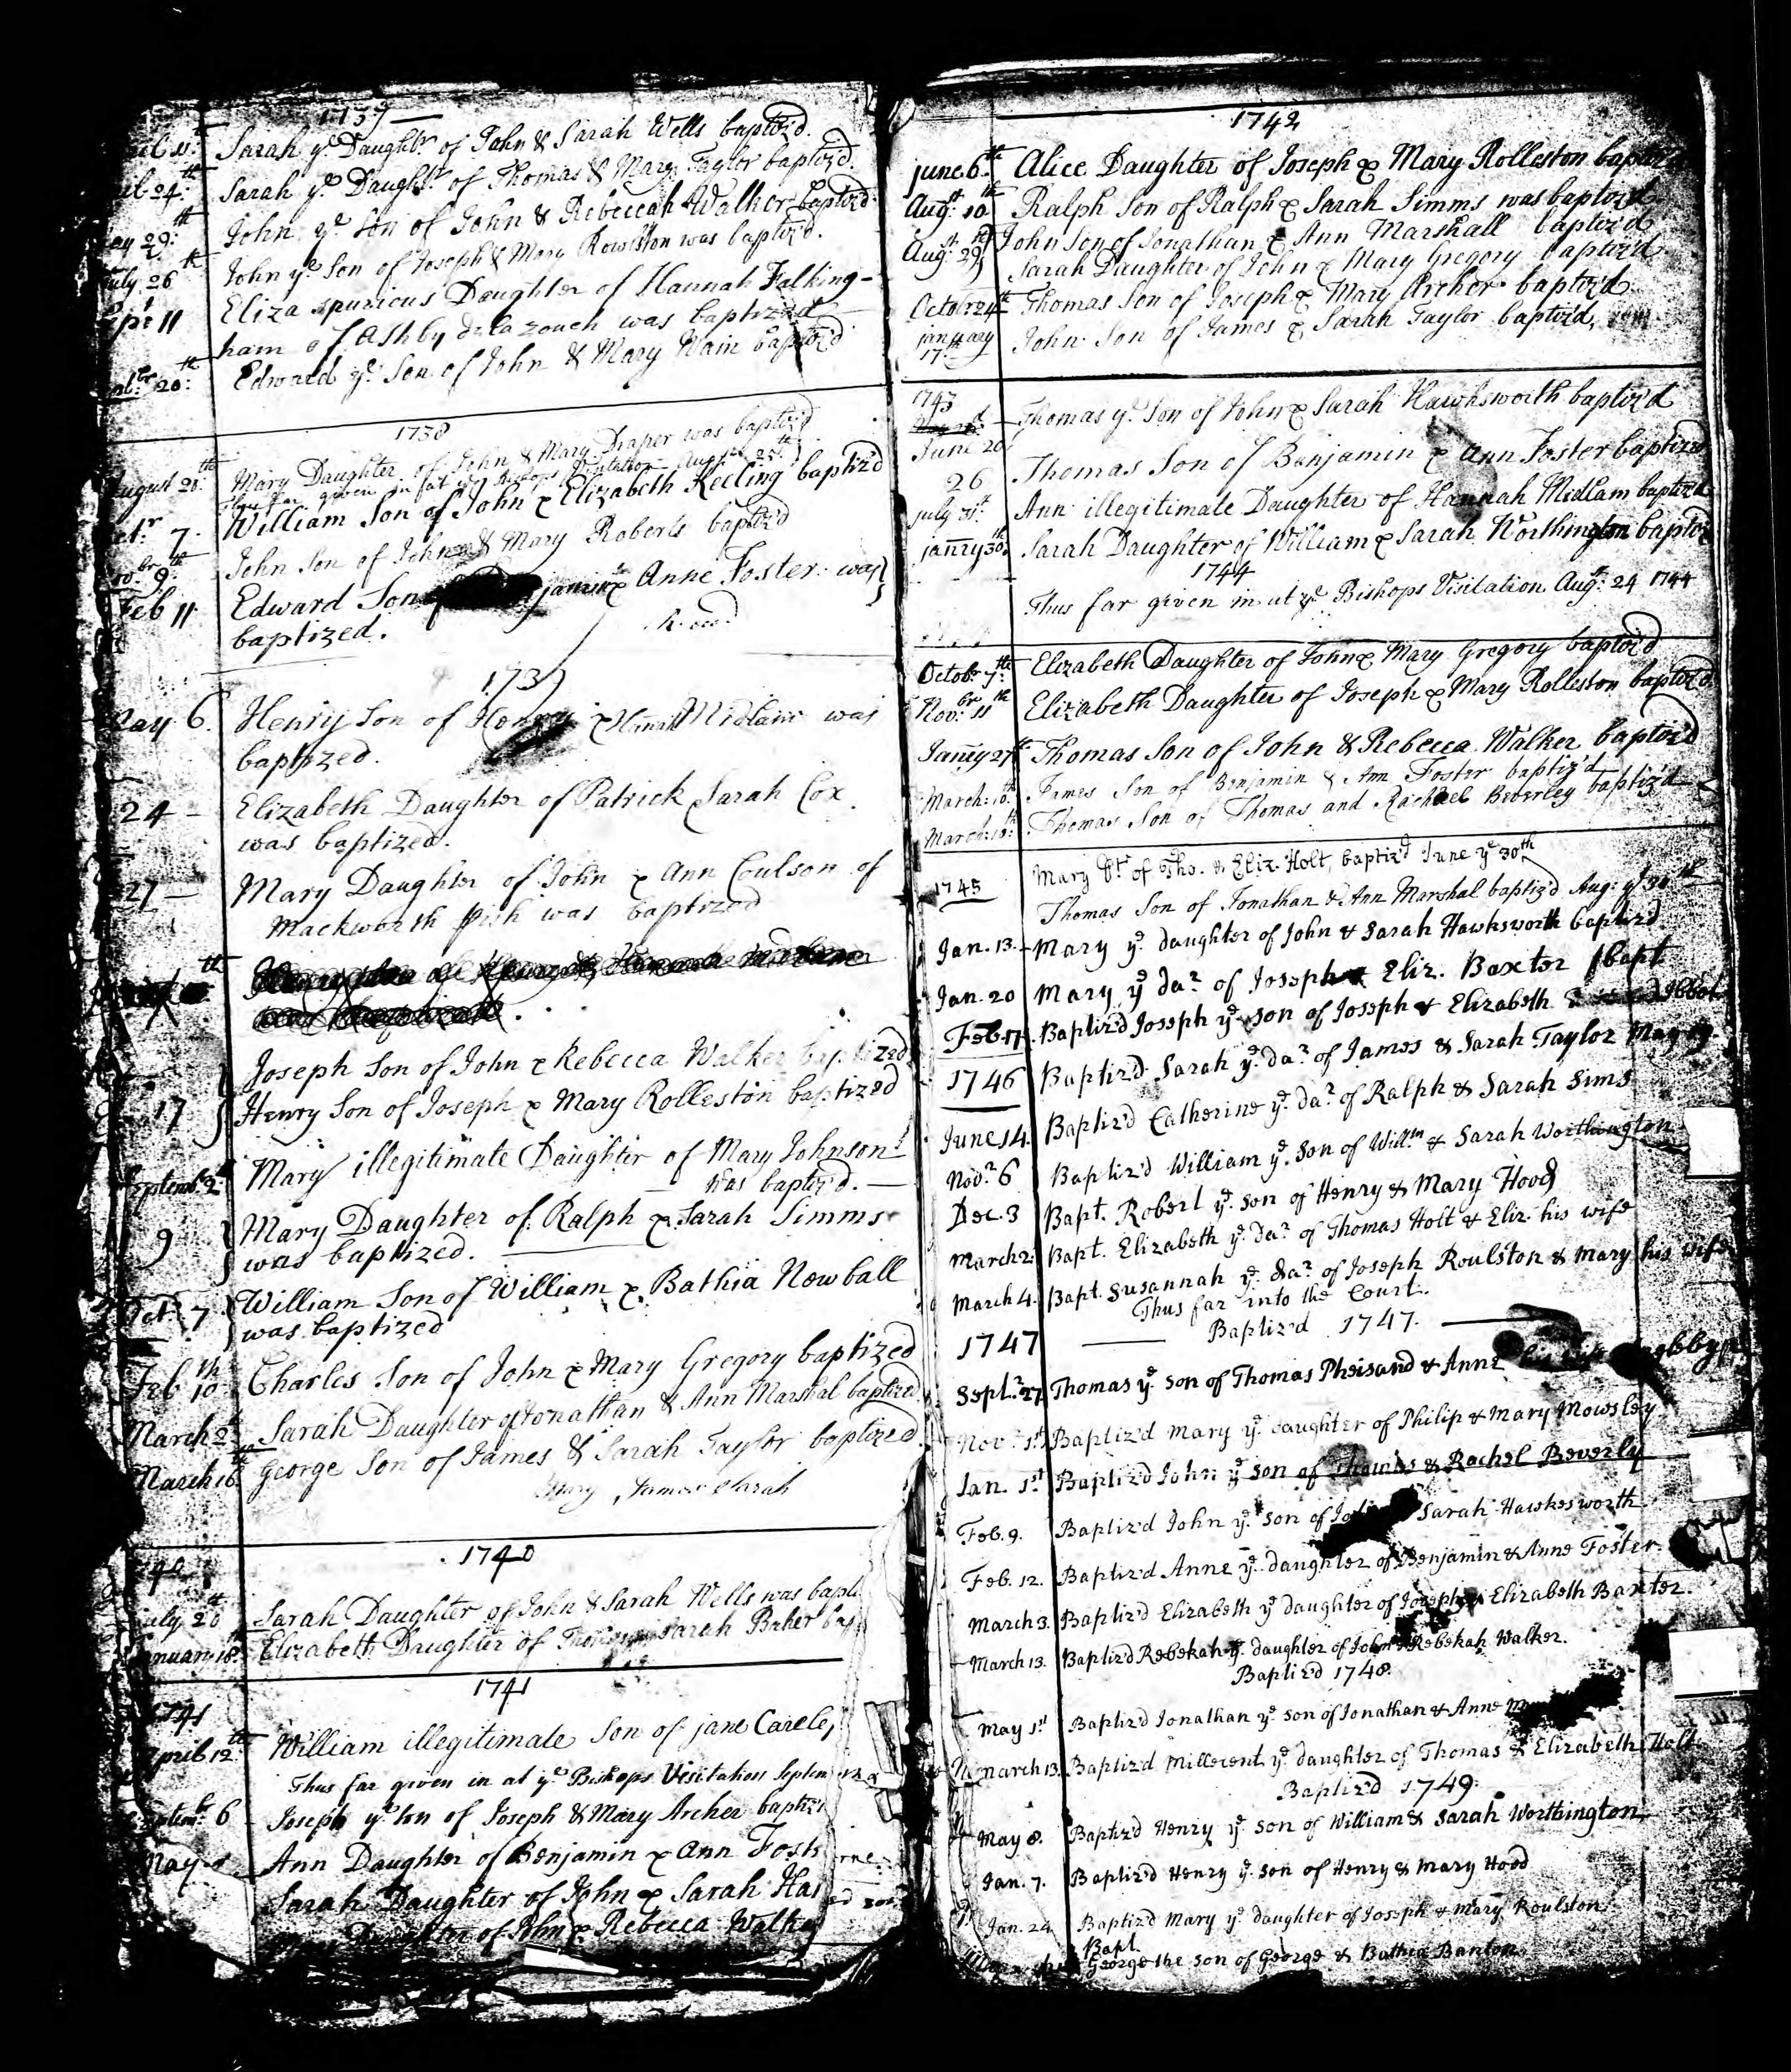 1737
Sarah ye Daughtr of John & Sarah Wells baptiz'd.
24th Sarah ye Daught of Thomas & Mary Taylor baptiz'd.
29th John ye Son of John & Rebeccah Walker baptiz'd
July 26th John ye Son of Joseph & Mary Rowlston was baptiz'd.
11 Eliza spurious Daughter of Hannah Falking-
ham of Ashby dela zouch was baptized
20th Edward ye Son of John & Mary baptiz'd
1738
August 20th Mary Daughter of John & Mary Draper was baptiz'd
Thus far given in at ye Bishops Visitation August 25th
7 William Son of John & Elizabeth Keeling baptiz'd
9th John Son of John & Mary Roberts baptiz'd
Feb 11 Edward Son Anne Foster was
baptized.
173
May 6. Henry Son of Henry & Hannah Midlam was
baptized.
24 – Elizabeth Daughter of Patrick Sarah Cox
was baptized.
27 – Mary Daughter of John & Ann Coulson of
Mackworth pish was baptized
Joseph Son of John & Rebecca Walker baptized
17 Henry Son of Joseph & Mary Rolleston baptized
Septemb 2d Mary illegitimate Daughter of Mary Johnson
was baptiz'd. —
9 Mary Daughter of Ralph & Sarah Simms
was baptized.
Oct 7 William Son of William & Bathia Newball
was baptized
Feb 10th Charles Son of John & Mary Gregory baptized
March 2d Sarah Daughter of Jonathan & Ann Marshal baptized
March 16th George Son of James & Sarah Taylor baptized
Mary James Sarah
1740
July 20th Sarah Daughter of John & Sarah Wells was bapt
January 18 Elizabeth Daughter of Thomas Sarah Baker bap
1741
1741
April 12th William illegitimate Son of jane
Thus far given in at ye Bishops Visitation Septem
6 Joseph ye Son of Joseph & Mary Archer baptiz
May Ann Daughter of Benjamin & Ann Fost
Sarah Daughter of John & Sarah Ha
Daughter of John & Rebecca Walke
1742
june 6th Alice Daughter of Joseph & Mary Rolleston bapt
Augst 10th Ralph Son of Ralph & Sarah Simms was baptiz'd
Augst 29th John Son of Jonathan & Ann Marshall baptiz'd
Sarah Daughter of John & Mary Gregory baptiz'd
Octobr 24th Thomas Son of Joseph & Mary Archer baptiz'd
january
17th John Son of James & Sarah Taylor baptiz'd
1743
Thomas ye Son of John & Sarah Hawksworth baptiz'd
June 20
26 Thomas Son of Benjamin & Ann Foster baptized
july 31st Ann illegitimate Daughter of Hannah Midlam baptized
janry 30th Sarah Daughter of William & Sarah Worthington bapt
1744
Thus far given in at ye Bishops Visitation Augst 24 1744
Octobr 7th Elizabeth Daughter of John & Mary Gregory baptiz'd
Novbr 11th Elizabeth Daughter of Joseph & Mary Rolleston baptiz'd
Janry 27th Thomas Son of John & Rebecca Walker baptiz'd
March 10th James Son of Benjamin & Ann Foster baptiz'd
March 18th Thomas Son of Thomas and Rachael Beverley baptiz'd
Mary Dtr of Tho. & Eliz. Holt, baptiz'd June ye 30th
1745
Thomas Son of Jonathan & Ann Marshal baptiz'd Aug: ye
Jan. 13. – Mary ye daughter of John & Sarah Hawksworth baptiz'd
Jan. 20 Mary ye dar of Joseph & Eliz. Baxter bapt
Feb. 17. Baptiz'd Joseph ye son of Joseph & Elizabeth
1746 Baptiz'd Sarah ye dar of James & Sarah Taylor May
June 14. Baptiz'd Catherine ye dar of Ralph & Sarah Sims
Novr 6 Baptiz'd William ye son of Willm & Sarah Worthington
Dec. 3 Bapt. Robert ye son of Henry & Mary Hood
March 2. Bapt. Elizabeth ye dar of Thomas Holt & Eliz. his wife
March 4. Bapt. Susannah ye dar of Joseph Roulston & Mary his wife
Thus far into the Court.
1747 — Baptiz'd 1747. —
Septr 27 Thomas ye son of Thomas Pheisand & Anne
Novr 1st Baptiz'd Mary ye daughter of Philip & Mary Mowsley
Jan. 1st Baptiz'd John ye son of Thomas & Rachel Beverly
Feb. 9. Baptiz'd John ye son of Sarah Hawkesworth
Feb. 12. Baptiz'd Anne ye daughter of Benjamin & Anne Foster.
March 3. Baptiz'd Elizabeth ye daughter of Joseph & Elizabeth Baxter.
March 13. Baptiz'd Rebekah ye daughter of John & Rebekah Walker.
Baptiz'd 1748.
May 1st Baptiz'd Jonathan ye son of Jonathan & Anne
March 13. Baptiz'd Millecent ye daughter of Thomas & Elizabeth Holt.
Baptiz'd 1749.
May 8. Baptiz'd Henry ye son of William & Sarah Worthington
Jan. 7. Baptiz'd Henry ye son of Henry & Mary Hood
Jan. 24 Baptiz'd Mary ye daughter of Joseph & Mary Roulston
Bapt.
George the son of George & Bathia Banton